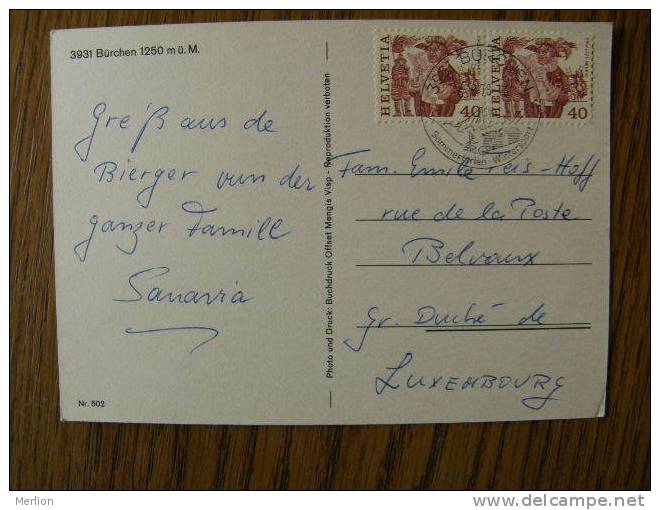 3931 Bürchen 1250 m ü. M.
Greiß aus de
Bierger vun der
ganzer Famill
Sanavia
Nr. 502
Photo und Druck: Buchdruck Offset Mengis Visp - Reproduktion verboten
HELVETIA
40
HELVETIA
40
BÜRCHEN
Sommerferien Wintersport
Fam. Emile Reis-Hoff
rue de la Poste
Belvaux
Gr. Duché de
LUXEMBOURG
Merlion
www.delcampe.net